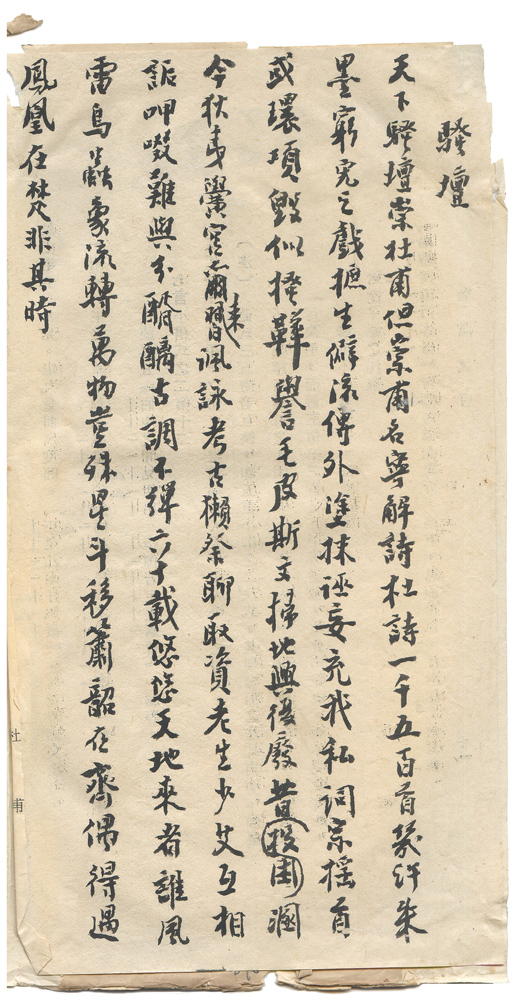 騷壇
天下騷壇崇杜甫但崇甫名寧解詩杜詩一千五百首幾許朱
墨窮究之戲摭生僻流傳外塗抹誣妄充我私詞宗搖首
或環項毀似撻鞾譽毛皮斯文掃地興復廢昔投圂溷
今狄夷黌宮蕭來諷詠考古獺祭聊取資老生少艾互相
詬呷啜難與分醨古調不彈六十載悠悠天地來者誰風
雷鳥獸象流轉萬物豈殊星斗移簫韶在齊偶得遇
鳳凰在梵非其時
杜
甫